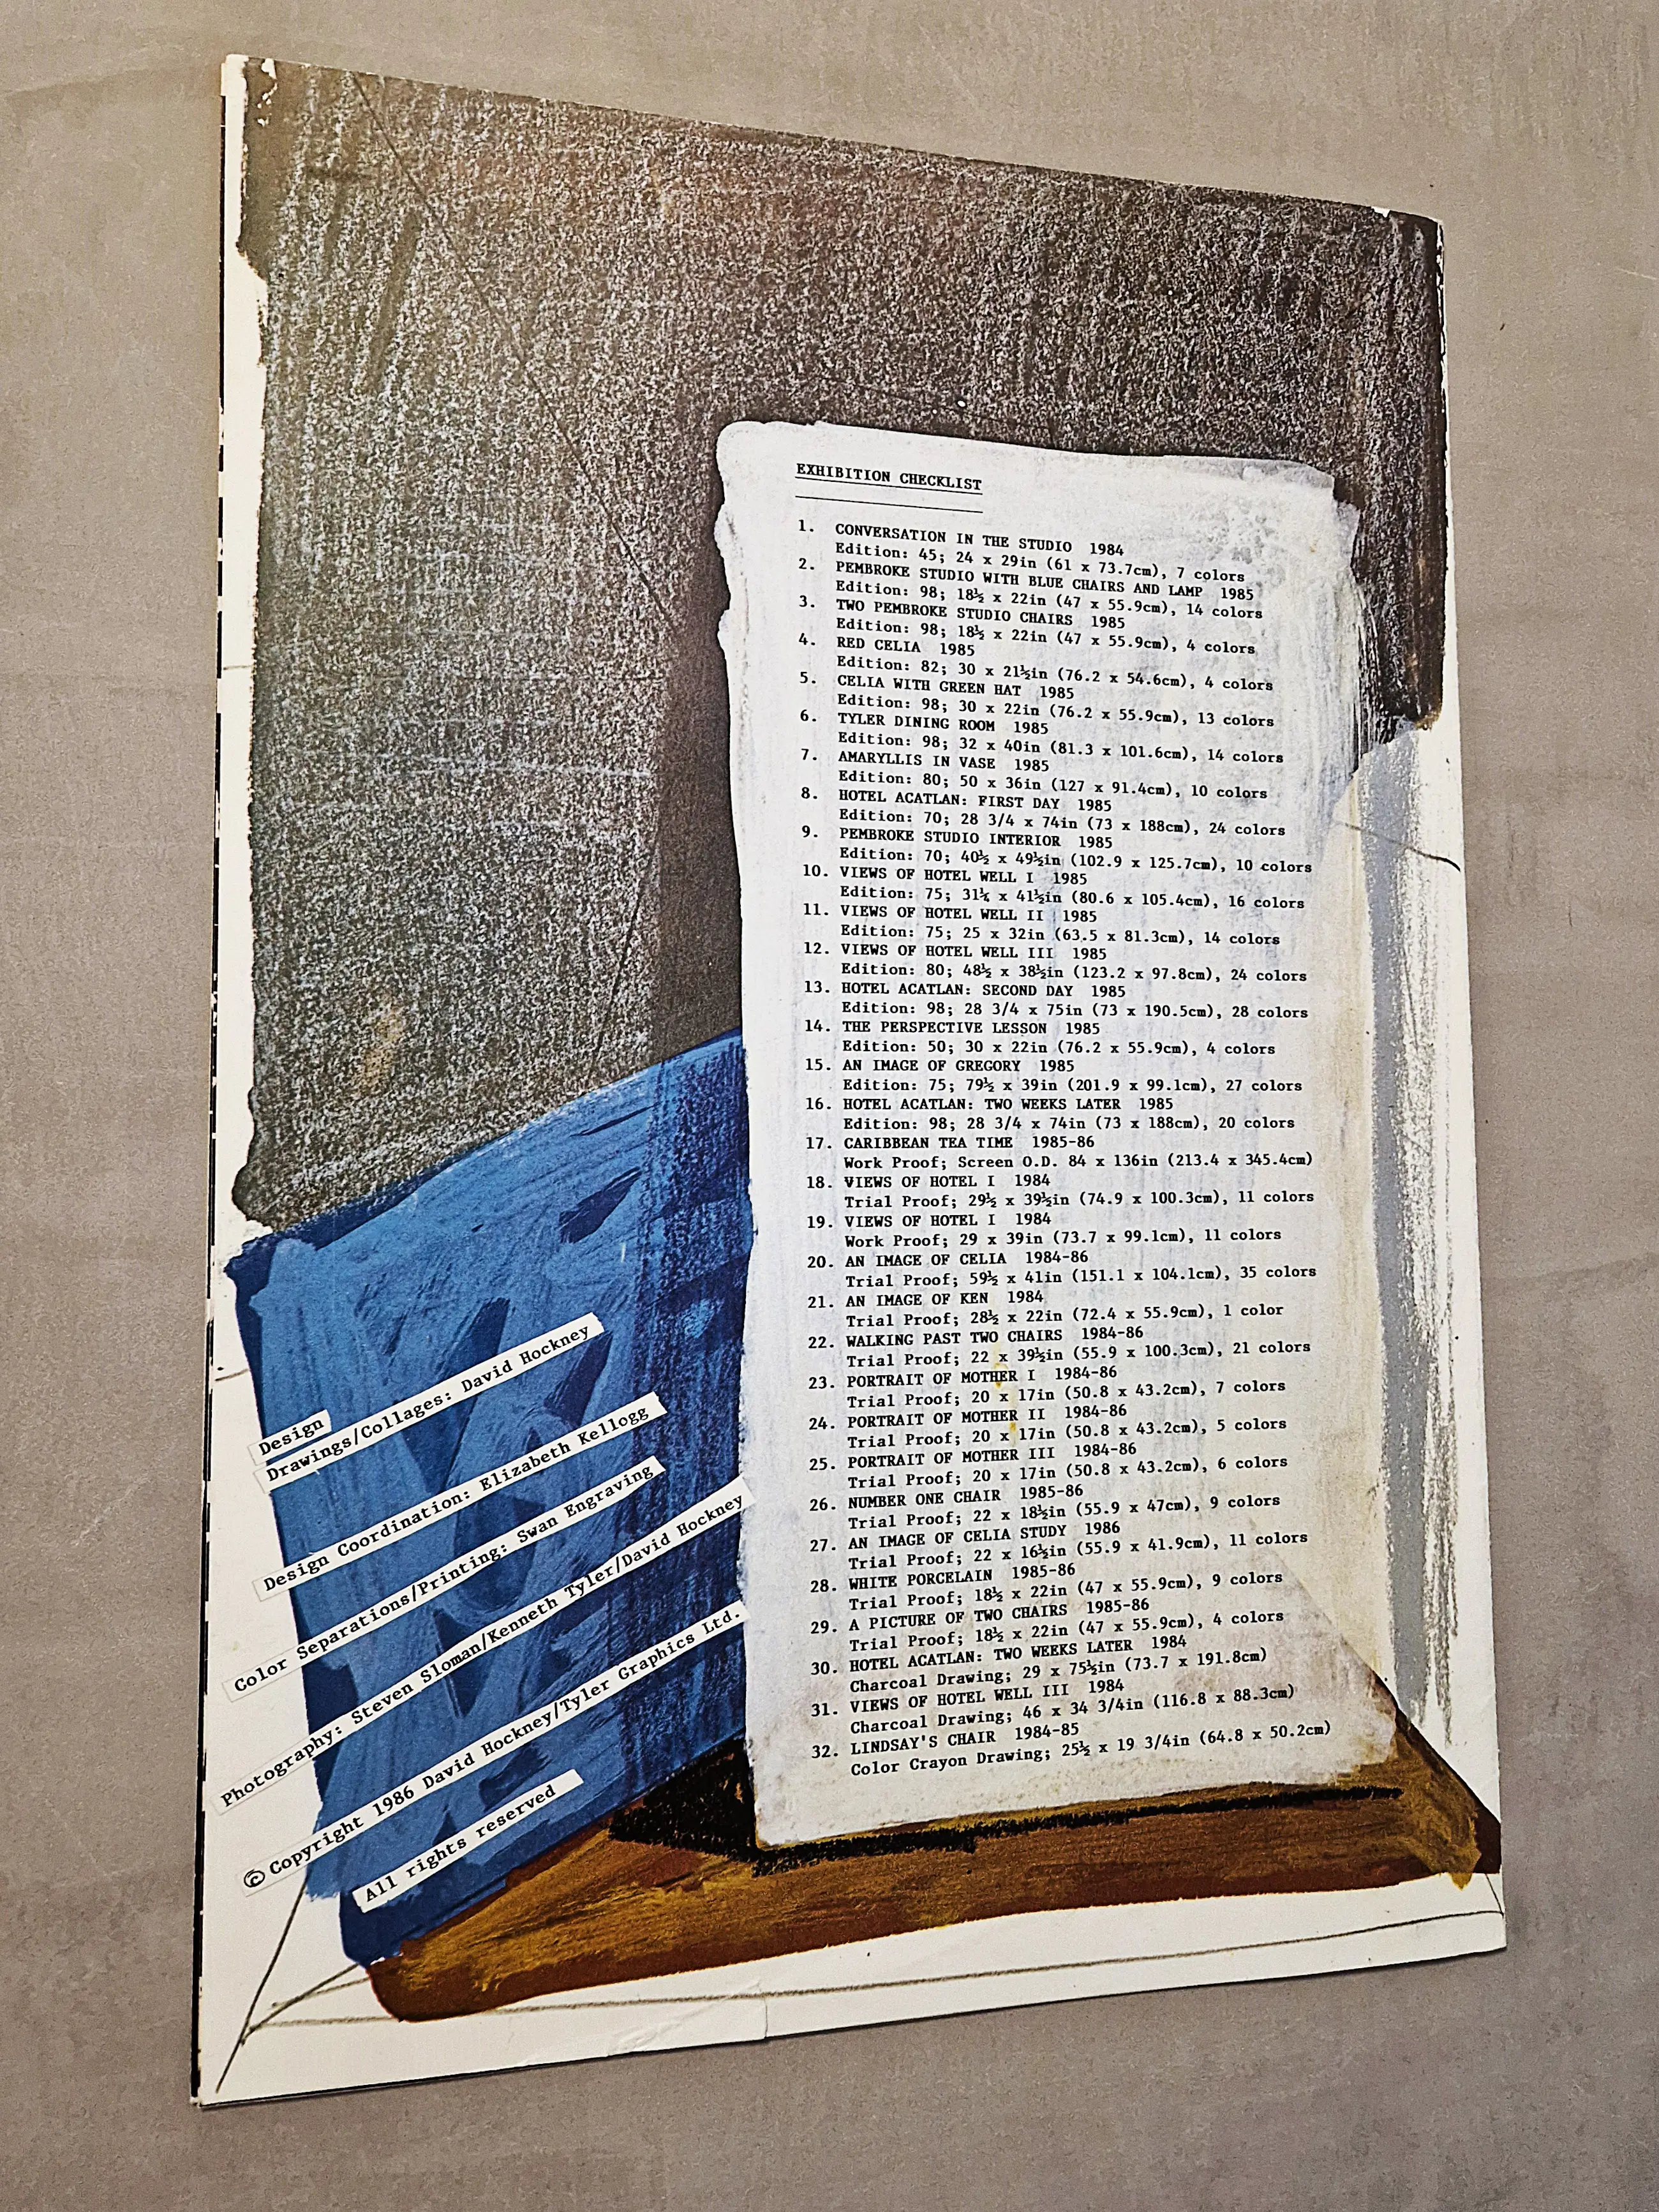 EXHIBITION CHECKLIST
1. CONVERSATION IN THE STUDIO 1984
Edition: 45; 24 x 29in (61 x 73.7cm), 7 colors
2. PEMBROKE STUDIO WITH BLUE CHAIRS AND LAMP 1985
Edition: 98; 18½ x 22in (47 x 55.9cm), 14 colors
3. TWO PEMBROKE STUDIO CHAIRS 1985
Edition: 98; 18½ x 22in (47 x 55.9cm), 4 colors
4. RED CELIA 1985
Edition: 82; 30 x 21½in (76.2 x 54.6cm), 4 colors
5. CELIA WITH GREEN HAT 1985
Edition: 98; 30 x 22in (76.2 x 55.9cm), 13 colors
6. TYLER DINING ROOM 1985
Edition: 98; 32 x 40in (81.3 x 101.6cm), 14 colors
7. AMARYLLIS IN VASE 1985
Edition: 80; 50 x 36in (127 x 91.4cm), 10 colors
8. HOTEL ACATLAN: FIRST DAY 1985
Edition: 70; 28 3/4 x 74in (73 x 188cm), 24 colors
9. PEMBROKE STUDIO INTERIOR 1985
Edition: 70; 40½ x 49½in (102.9 x 125.7cm), 10 colors
10. VIEWS OF HOTEL WELL I 1985
Edition: 75; 31¾ x 41½in (80.6 x 105.4cm), 16 colors
11. VIEWS OF HOTEL WELL II 1985
Edition: 75; 25 x 32in (63.5 x 81.3cm), 14 colors
12. VIEWS OF HOTEL WELL III 1985
Edition: 80; 48½ x 38½in (123.2 x 97.8cm), 24 colors
13. HOTEL ACATLAN: SECOND DAY 1985
Edition: 98; 28 3/4 x 75in (73 x 190.5cm), 28 colors
14. THE PERSPECTIVE LESSON 1985
Edition: 50; 30 x 22in (76.2 x 55.9cm), 4 colors
15. AN IMAGE OF GREGORY 1985
Edition: 75; 79½ x 39in (201.9 x 99.1cm), 27 colors
16. HOTEL ACATLAN: TWO WEEKS LATER 1985
Edition: 98; 28 3/4 x 74in (73 x 188cm), 20 colors
17. CARIBBEAN TEA TIME 1985-86
Work Proof; Screen O.D. 84 x 136in (213.4 x 345.4cm)
18. VIEWS OF HOTEL I 1984
Trial Proof; 29½ x 39½in (74.9 x 100.3cm), 11 colors
19. VIEWS OF HOTEL I 1984
Work Proof; 29 x 39in (73.7 x 99.1cm), 11 colors
20. AN IMAGE OF CELIA 1984-86
Trial Proof; 59½ x 41in (151.1 x 104.1cm), 35 colors
21. AN IMAGE OF KEN 1984
Trial Proof; 28½ x 22in (72.4 x 55.9cm), 1 color
22. WALKING PAST TWO CHAIRS 1984-86
Trial Proof; 22 x 39½in (55.9 x 100.3cm), 21 colors
23. PORTRAIT OF MOTHER I 1984-86
Trial Proof; 20 x 17in (50.8 x 43.2cm), 7 colors
24. PORTRAIT OF MOTHER II 1984-86
Trial Proof; 20 x 17in (50.8 x 43.2cm), 5 colors
25. PORTRAIT OF MOTHER III 1984-86
Trial Proof; 20 x 17in (50.8 x 43.2cm), 6 colors
26. NUMBER ONE CHAIR 1985-86
Trial Proof; 22 x 18½in (55.9 x 47cm), 9 colors
27. AN IMAGE OF CELIA STUDY 1986
Trial Proof; 22 x 16½in (55.9 x 41.9cm), 11 colors
28. WHITE PORCELAIN 1985-86
Trial Proof; 18½ x 22in (47 x 55.9cm), 9 colors
29. A PICTURE OF TWO CHAIRS 1985-86
Trial Proof; 18½ x 22in (47 x 55.9cm), 4 colors
30. HOTEL ACATLAN: TWO WEEKS LATER 1984
Charcoal Drawing; 29 x 75½in (73.7 x 191.8cm)
31. VIEWS OF HOTEL WELL III 1984
Charcoal Drawing; 46 x 34 3/4in (116.8 x 88.3cm)
32. LINDSAY'S CHAIR 1984-85
Color Crayon Drawing; 25½ x 19 3/4in (64.8 x 50.2cm)
Design
Drawings/Collages: David Hockney
Design Coordination: Elizabeth Kellogg
Color Separations/Printing: Swan Engraving
Photography: Steven Sloman/Kenneth Tyler/David Hockney
© Copyright 1986 David Hockney/Tyler Graphics Ltd.
All rights reserved